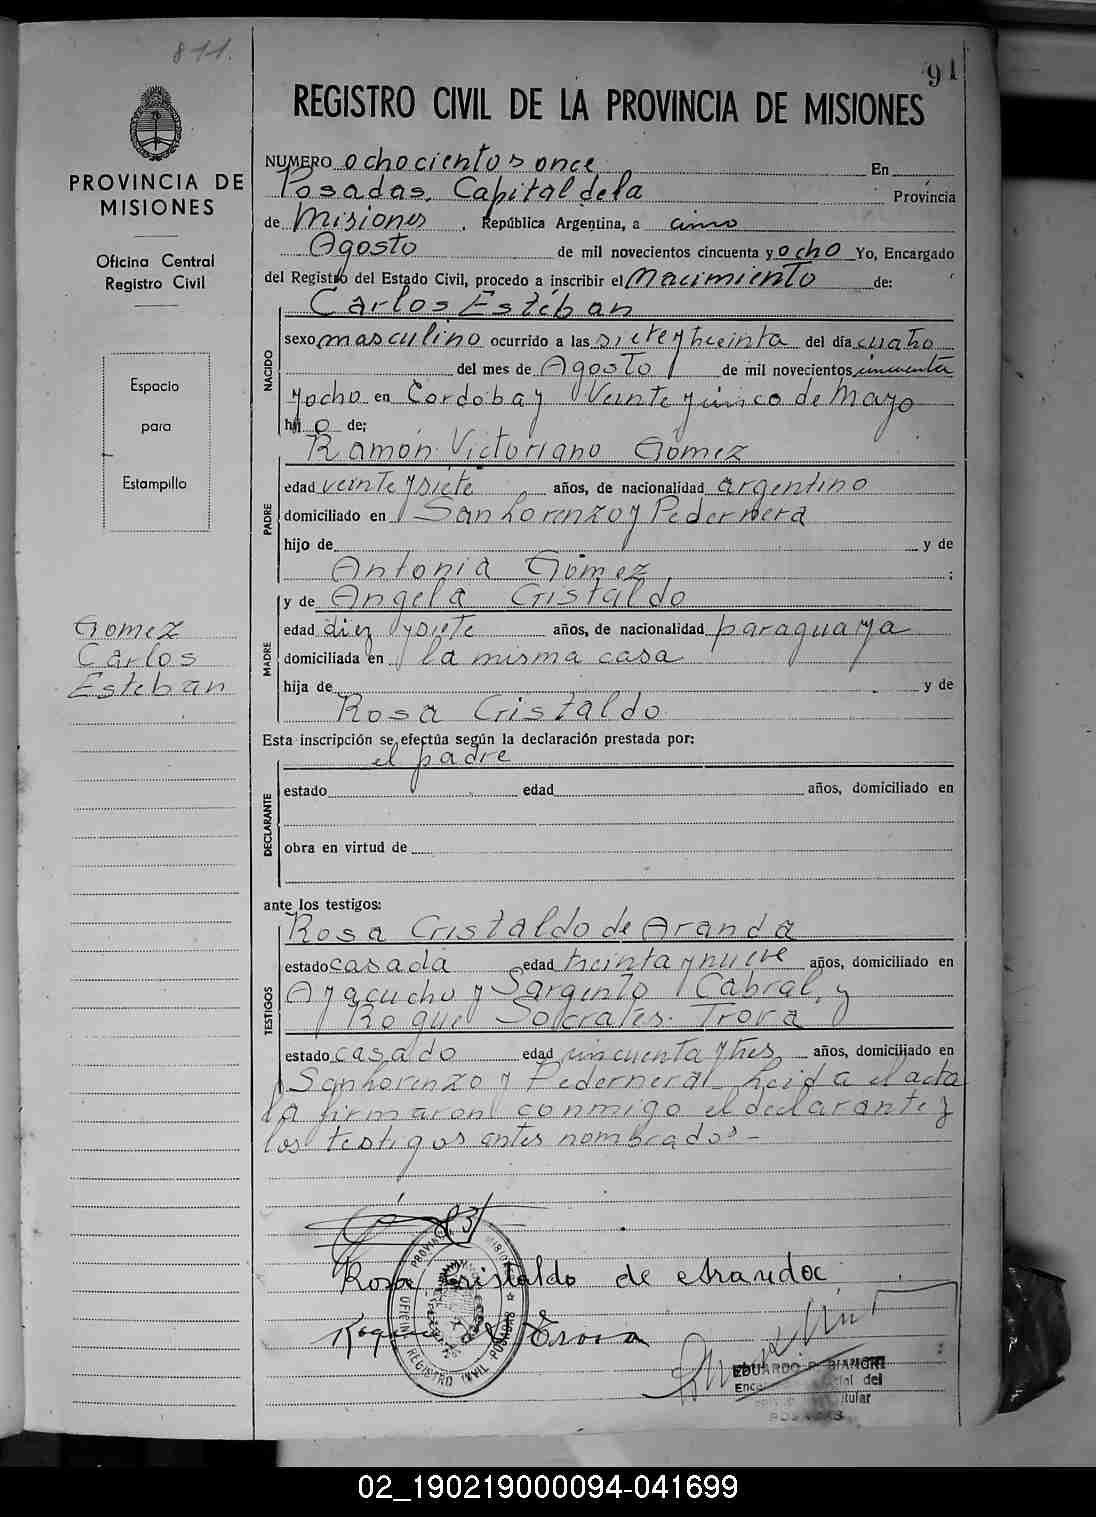 811.
91
REGISTRO CIVIL DE LA PROVINCIA DE MISIONES
PROVINCIA DE
MISIONES
Oficina Central
Registro Civil
Espacio
para
Estampillo
Gomez
Carlos
Esteban
NUMERO ochocientos once En
Posadas, Capital de la Provincia
de Misiones, República Argentina, a cinco
Agosto de mil novecientos cincuenta y ocho Yo, Encargado
del Registro del Estado Civil, procedo a inscribir el Nacimiento de:
NACIDO
Carlos Estéban
sexo masculino ocurrido a las siete y treinta del día cuatro
del mes de Agosto de mil novecientos cincuenta
y ocho en Cordoba y Veinte y cinco de Mayo
hijo de;
PADRE
Ramón Victoriano Gomez
edad veinte y siete años, de nacionalidad argentino
domiciliado en San Lorenzo y Pedernera
hijo de y de
Antonia Gomez ;
MADRE
y de Angela Cristaldo
edad diez y siete años, de nacionalidad paraguaya
domiciliada en la misma casa
hija de y de
Rosa Cristaldo
Esta inscripción se efectúa según la declaración prestada por:
DECLARANTE
el padre
estado edad años, domiciliado en
obra en virtud de
ante los testigos:
TESTIGOS
Rosa Cristaldo de Aranda
estado casada edad treinta y nueve años, domiciliado en
Ayacucho y Sargento Cabral, y
Roque Socrates Trova
estado casado edad cincuenta y tres años, domiciliado en
San Lorenzo y Pedernera. Leida el acta
la firmaron conmigo el declarante y
los testigos antes nombrados -
Rosa Cristaldo de Aranda
Roque S Trova
PROVINCIA MISIONES
OFICINA REGISTRO CIVIL POSADAS
EDUARDO R. BIANCHI
POSADAS
02_190219000094-041699